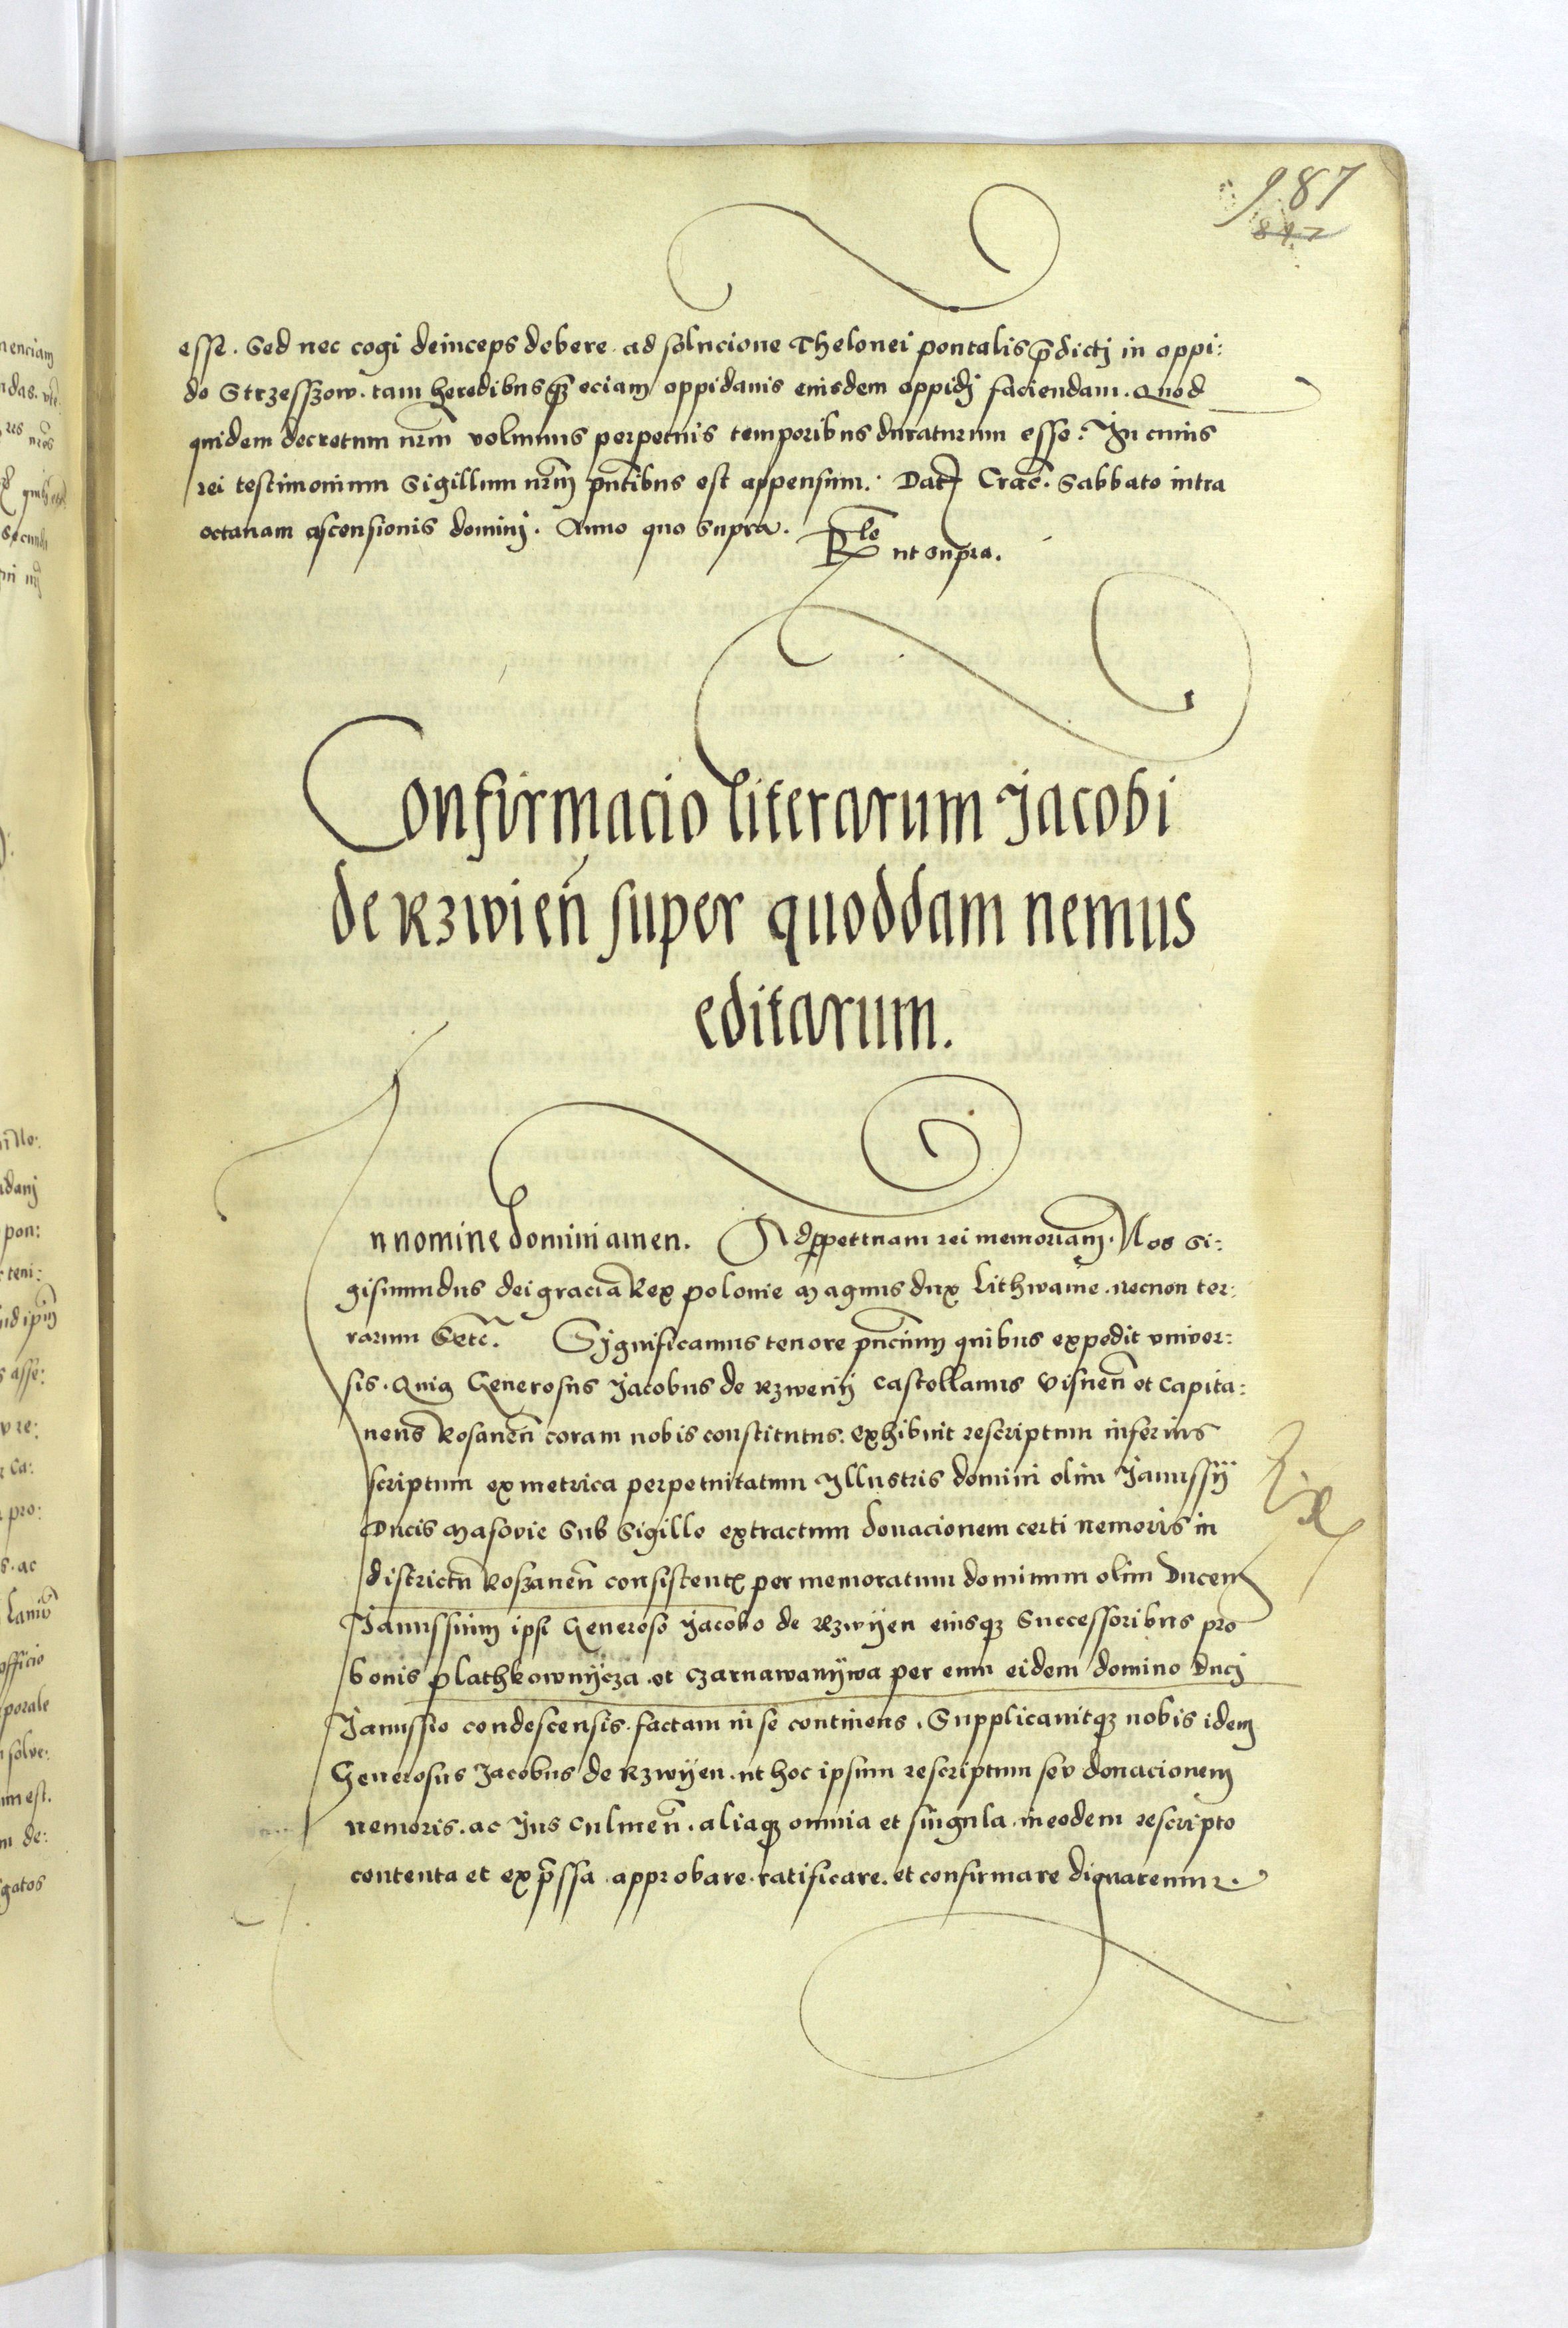 987
847
esse. Sed nec cogi deinceps debere. ad solucione Thelonei pontalis p̄dictj in oppi:
do Strzesszow. tam heredibus qꝫ eciam oppidanis eiusdem oppidj faciendam. Quod
quidem decretum nr̄m volumus perpetuis temporibus duraturum esse. In cuius
rei testimonium Sigillum nr̄m pn̄tibus est appensum. Dat Crac̄. Sabbato intra
octauam ascensionis dominj. Anno quo supra.
Rˡᵒ ut supra.
Confirmacio literarum Jacobi
de Rzwien̄ super quoddam nemus
editarum.
In nomine domini amen. Ad pꝑetuam rei memoriam. Nos Si:
gismundus dei gracia Rex polonie Magnus dux Lithwanie. necnon ter:
rarum &etc. Significamus tenore pn̄cium quibus expedit vniuer:
sis. Quia Generosus Jacobus de Rzwenij Castellanus Visnen̄ et Capita:
neus Rosanen̄ coram nobis constitutus. exhibuit rescriptum inferius
scriptum ex metrica perpetuitatum Illustris domini olim Janussij
Ducis Masovie Sub Sigillo extractum donacionem certi nemoris in
districtu Roszanen̄ consistent per memoratum dominum olim Ducem
Janussium ipsi Generoso Jacobo de Rzwijen eiusqꝫ Successoribus pro
bonis plathkownijcza et Czarnawanijwa per eum eidem domino Ducj
Janussio condescensis. factam in se continens. Supplicauitqꝫ nobis idem
Generosus Jacobus de Rzwijen. ut hoc ipsum rescriptum sev donacionem
nemoris. ac Jus Culmen̄. aliaqꝫ omnia et singula in eodem rescripto
contenta et exp̄ssa approbare. ratificare. et confirmare dignaremur.